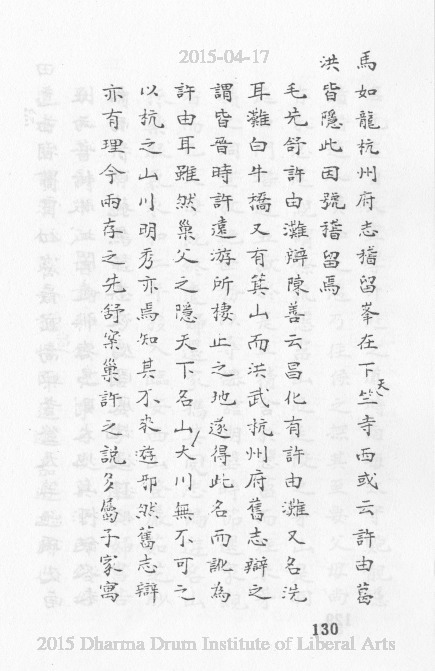 2015-04-17
馬如龍杭州府志稽留峯在下天竺寺西或云許由葛
洪皆隱此因號稽留焉
毛先舒許由灘辯陳善云昌化有許由灘又名洗
耳灘白牛橋又有箕山而洪武杭州府舊志辯之
謂皆晉時許遠游所棲止之地遂得此名而訛為
許由耳雖然巢父之隱天下名山大川無不可之
以杭之山川明秀亦焉知其不來游邪然舊志辯
亦有理今兩存之先舒案巢許之說多屬子家寓
130
2015 Dharma Drum Institute of Liberal Arts